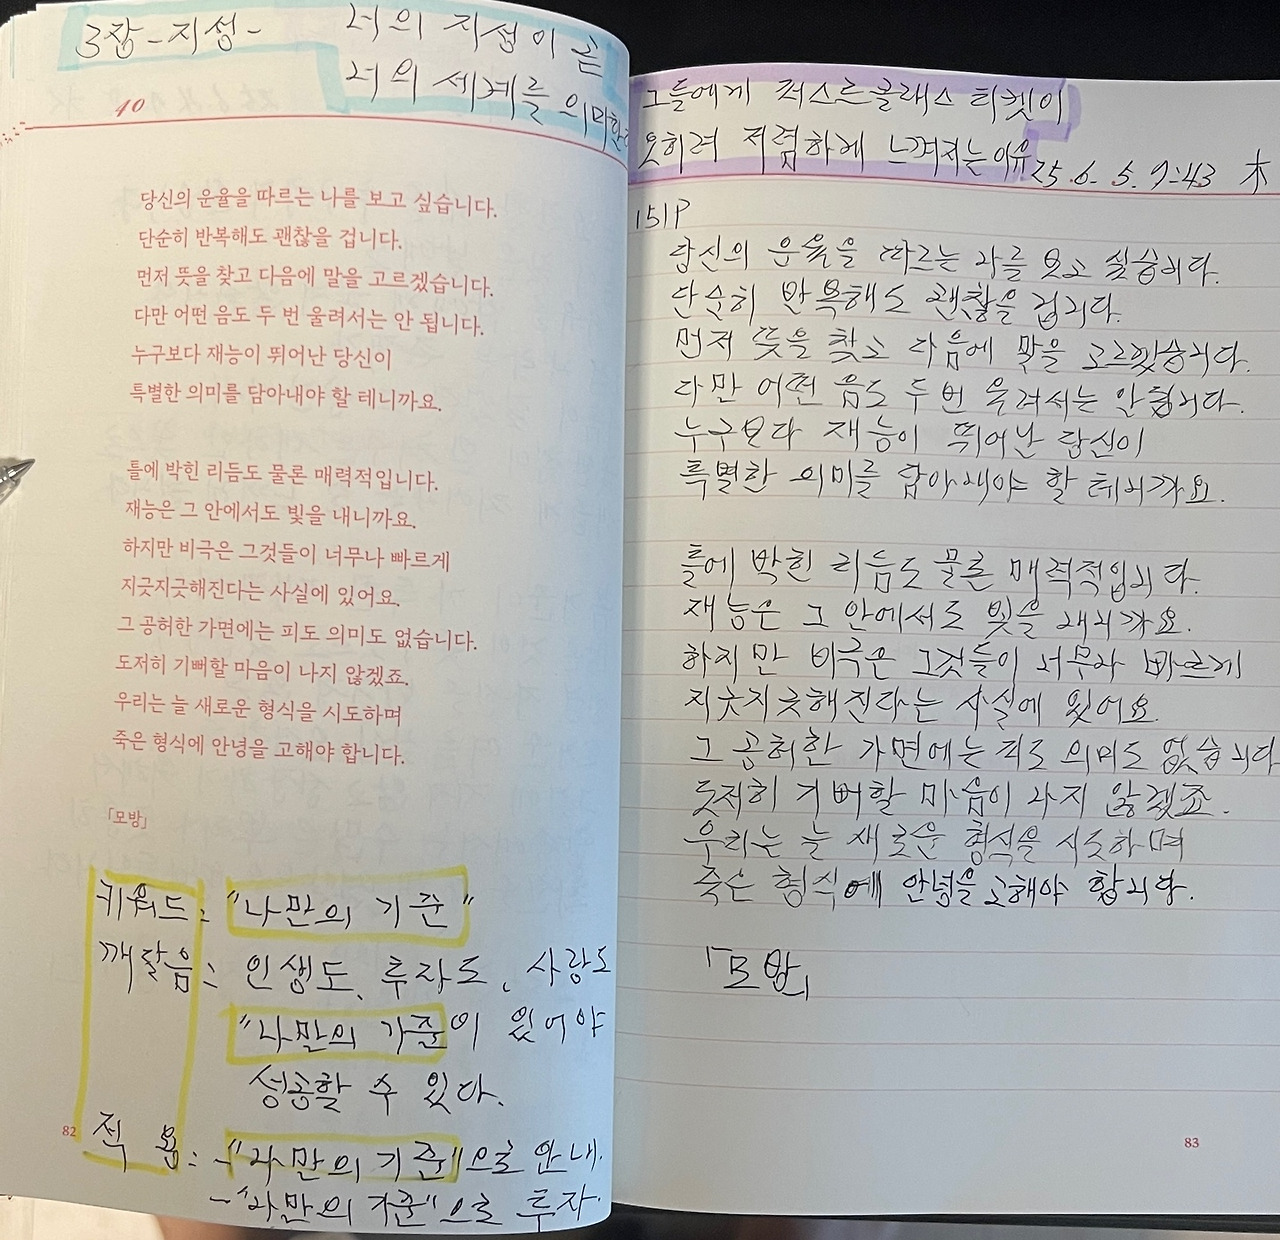 3장-지성-
너의 지성이 곧
너의 세계를 의미한다
40
당신의 운율을 따르는 나를 보고 싶습니다.
단순히 반복해도 괜찮을 겁니다.
먼저 뜻을 찾고 다음에 말을 고르겠습니다.
다만 어떤 음도 두 번 울려서는 안 됩니다.
누구보다 재능이 뛰어난 당신이
특별한 의미를 담아내야 할 테니까요.
틀에 박힌 리듬도 물론 매력적입니다.
재능은 그 안에서도 빛을 내니까요.
하지만 비극은 그것들이 너무나 빠르게
지긋지긋해진다는 사실에 있어요.
그 공허한 가면에는 피도 의미도 없습니다.
도저히 기뻐할 마음이 나지 않겠죠.
우리는 늘 새로운 형식을 시도하며
죽은 형식에 안녕을 고해야 합니다.
「모방」
키워드: "나만의 기준"
깨달음: 인생도, 투자도, 사랑도
"나만의 기준"이 있어야
성공할 수 있다.
적용: -"나만의 기준"으로 안내.
-"나만의 기준"으로 투자.
82
그들에게 퍼스트클래스 티켓이
오히려 저렴하게 느껴지는 이유
25.6.5. 9:43 木
151P
당신의 운율을 따르는 나를 보고 싶습니다.
단순히 반복해도 괜찮을 겁니다.
먼저 뜻을 찾고 다음에 말을 고르겠습니다.
다만 어떤 음도 두 번 울려서는 안 됩니다.
누구보다 재능이 뛰어난 당신이
특별한 의미를 담아내야 할 테니까요.
틀에 박힌 리듬도 물론 매력적입니다.
재능은 그 안에서도 빛을 내니까요.
하지만 비극은 그것들이 너무나 빠르게
지긋지긋해진다는 사실에 있어요.
그 공허한 가면에는 피도 의미도 없습니다
도저히 기뻐할 마음이 나지 않겠죠.
우리는 늘 새로운 형식을 시도하며
죽은 형식에 안녕을 고해야 합니다.
「모방」
83